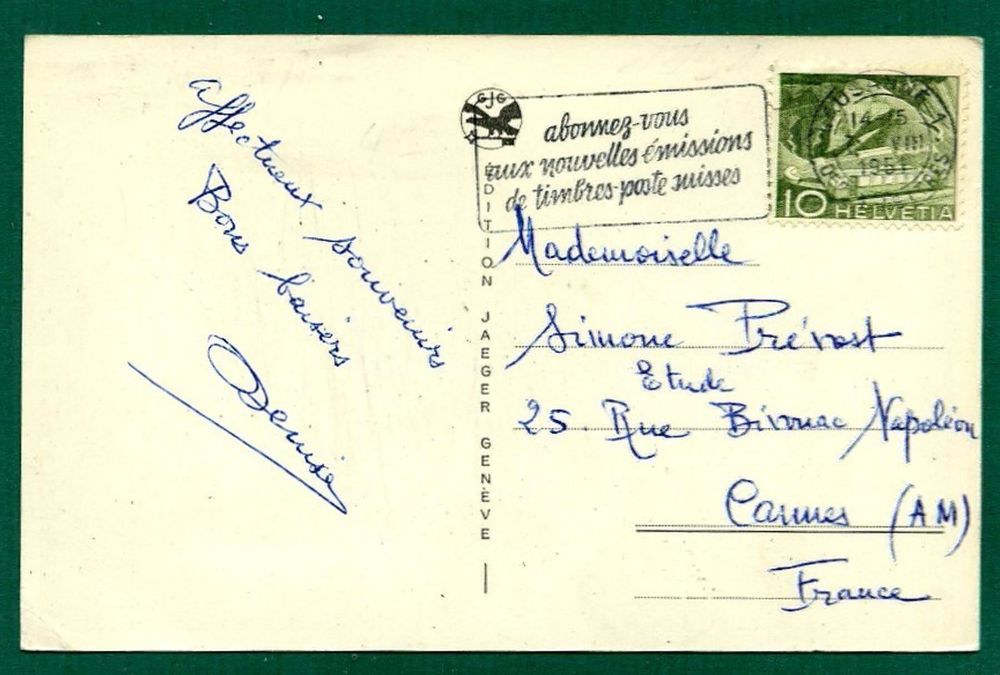 affectueux souvenirs
Bons baisers
Denise
GJG
abonnez-vous
aux nouvelles émissions
de timbres-poste suisses
LAUSANNE 1
14-15
VIII
1951
10 HELVETIA
ÉDITION JAEGER GENÈVE
Mademoiselle
Simone Prévost
Etude
25. Rue Bivouac Napoléon
Cannes (AM)
France